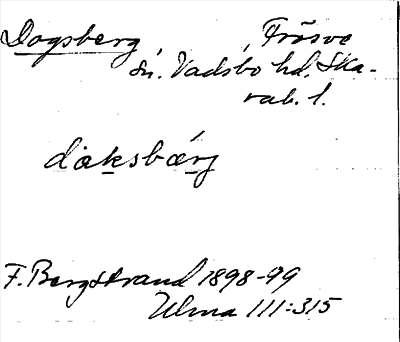 Dagsberg, Fräsve
sn. Vadsbo hd. Ska-
rab. l.
dåksbærj
F. Bergstrand 1898-99
Ulma 111:315